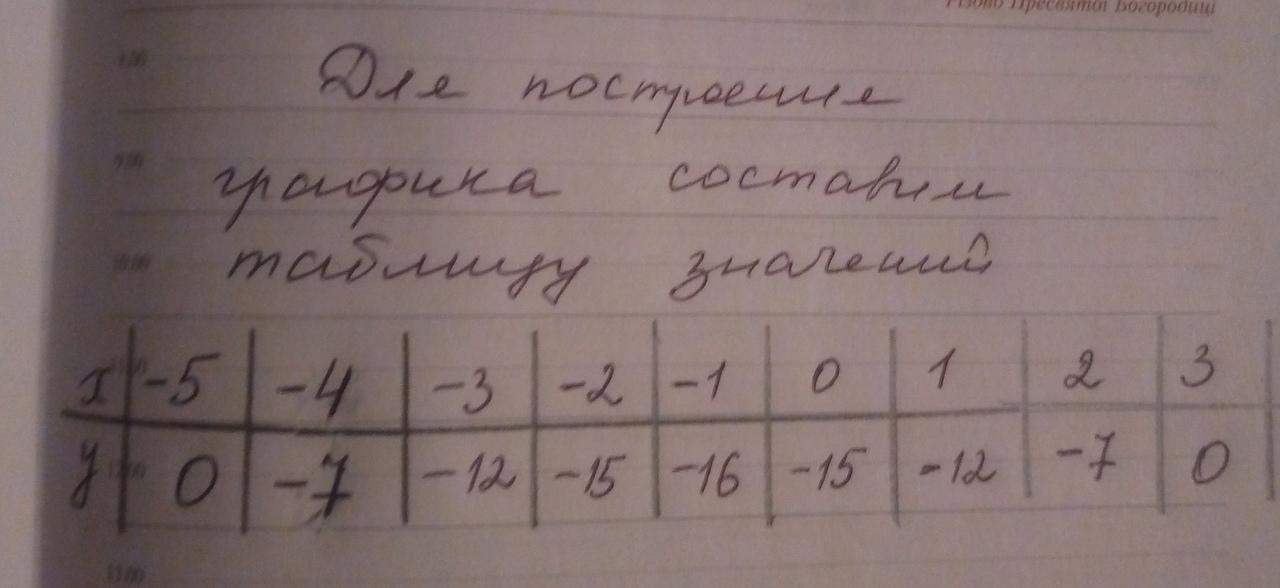 Різдво Пресвятої Богородиці
8.00
Для построения
9.00
графика составим
10.00
таблицу значений
x -5 -4 -3 -2 -1 0 1 2 3
y 0 -7 -12 -15 -16 -15 -12 -7 0
13.00